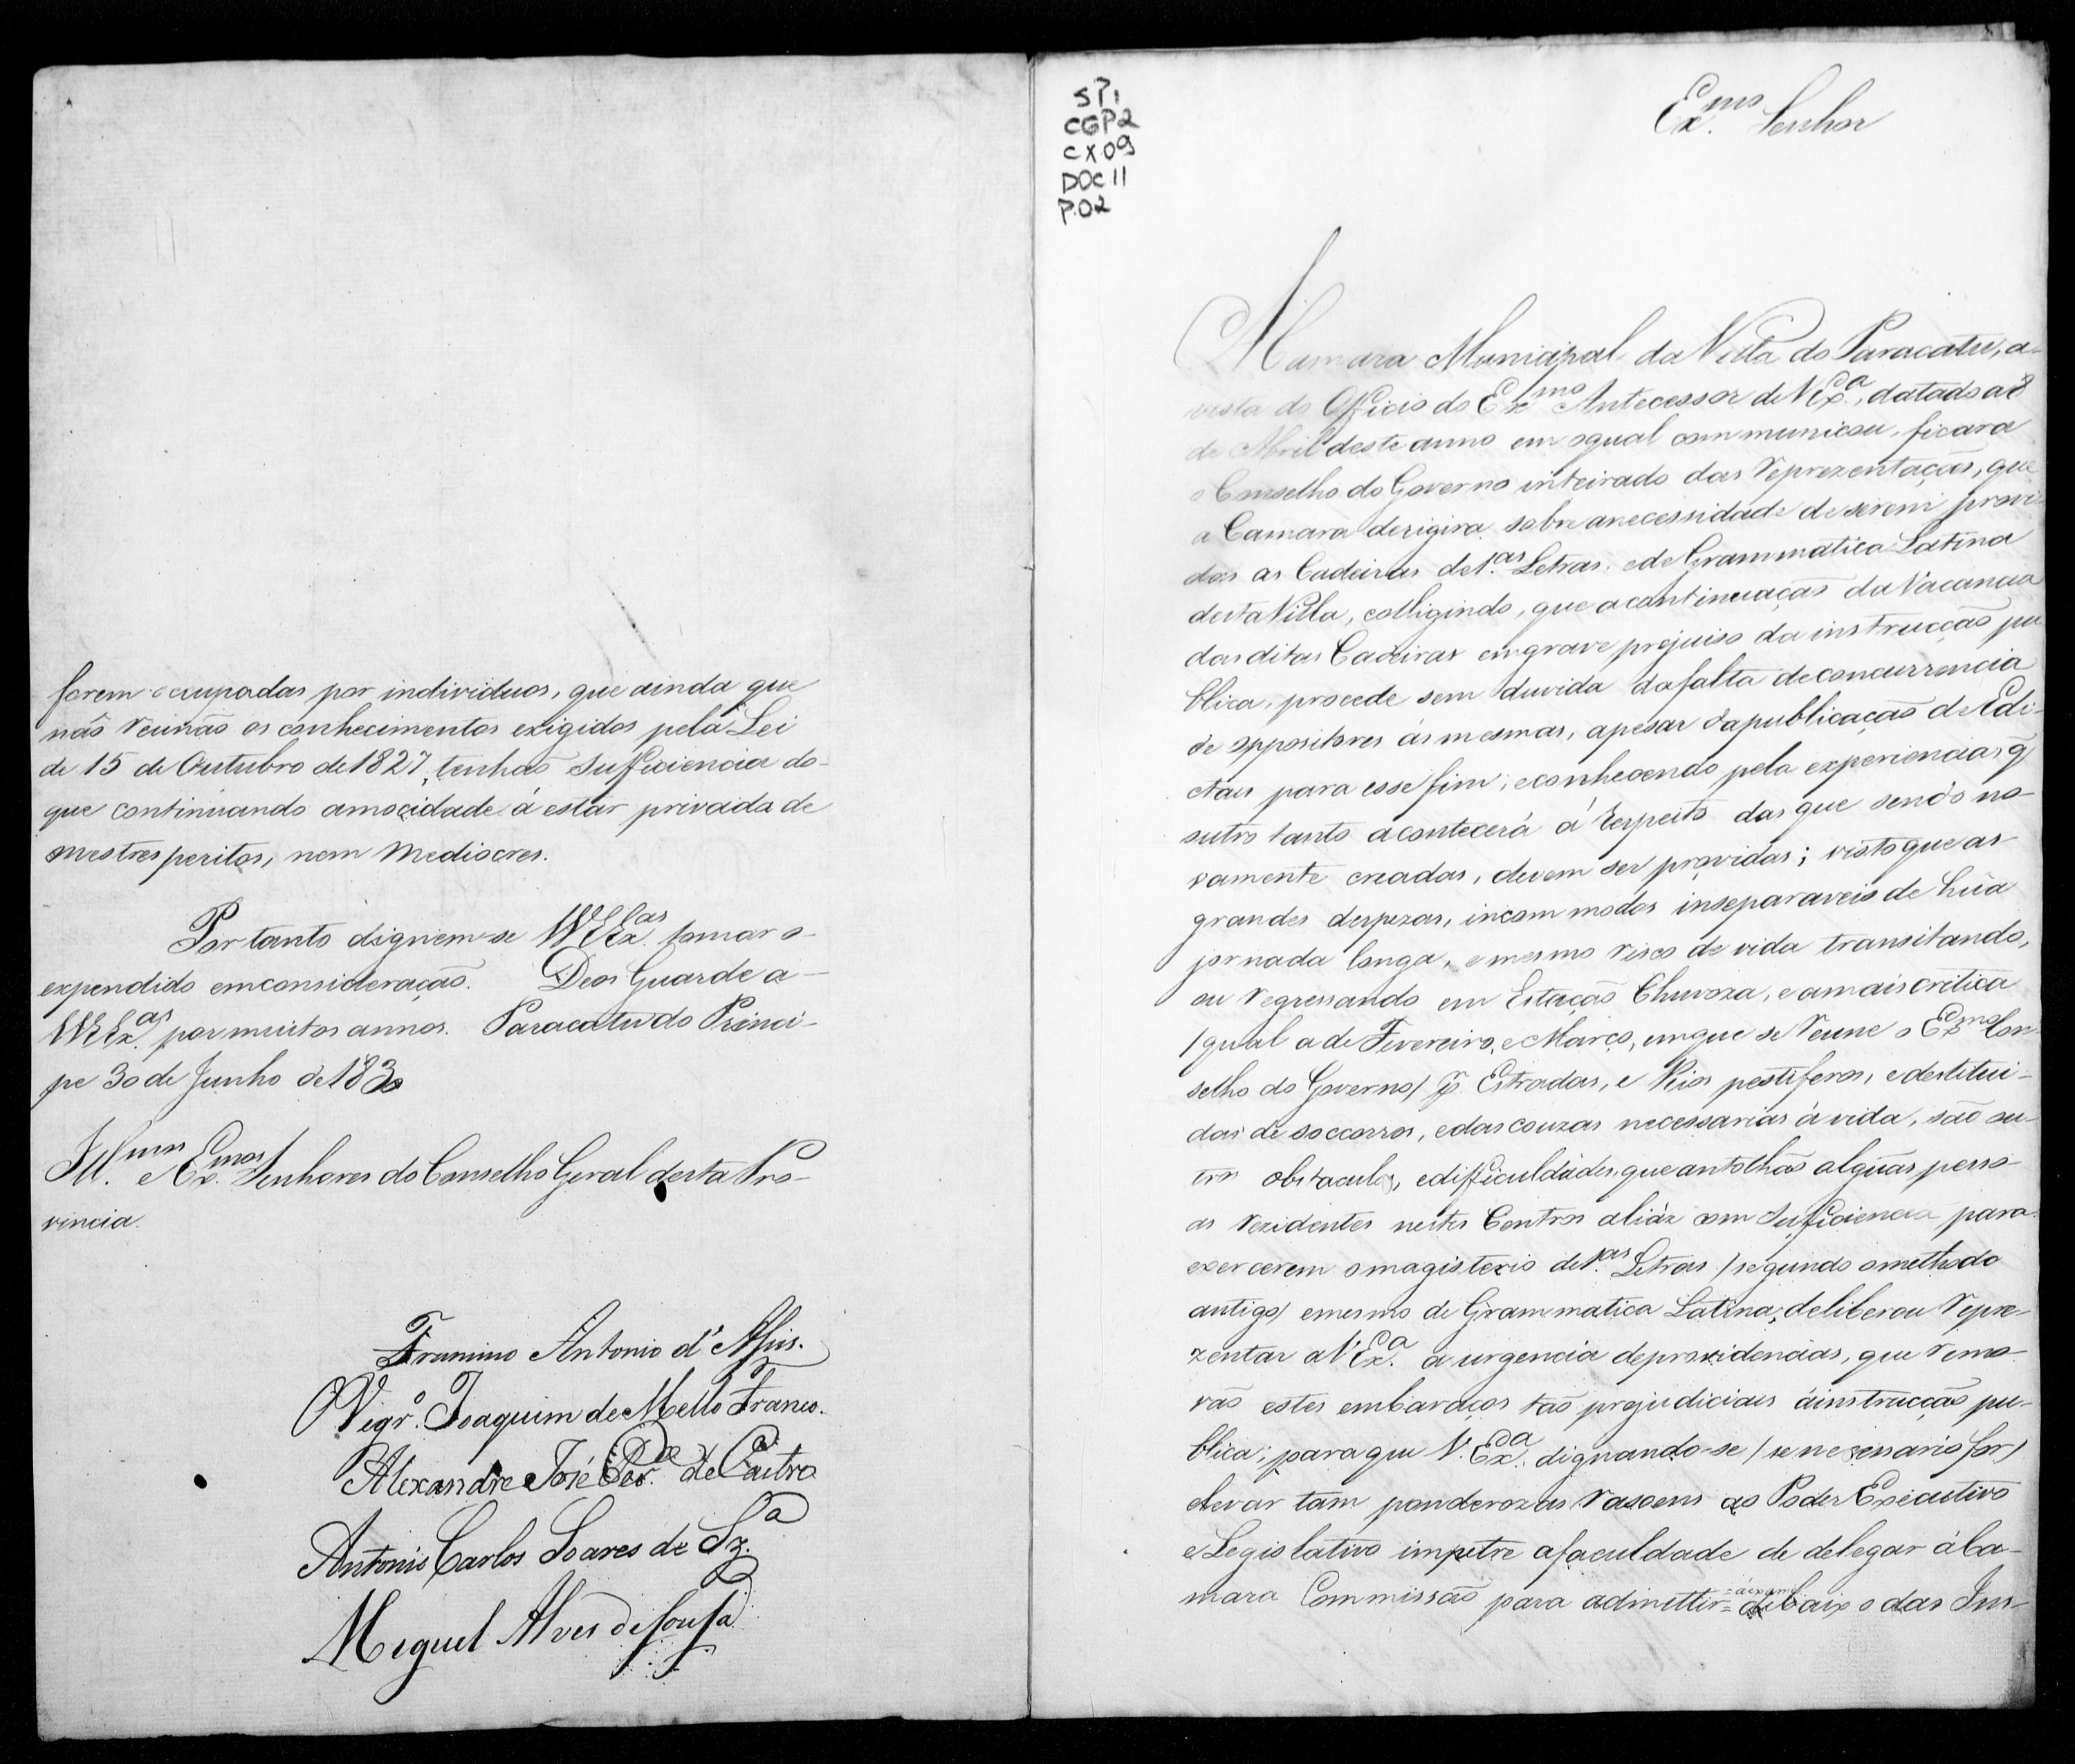 forem occupadas por individuos, que ainda que
não reunão os conhecimentos exigidos pela Lei
de 15 de Outubro de 1827, tenhão sufficiencia do-
que continuando amocidade á estar privada de
mestres peritos, nem mediocres.
Por tanto dignem-se VVEEx.as tomar o-
expendido emconsideração. Deos Guarde a-
VVEEx.as por muitos annos. Paracatu do Princi-
pe 30 de Junho de 1830
Ill.mos e Ex.mos Senhores do Conselho Geral desta Pro-
vincia.
Antonio d'Assis.
O Vigr.o Joaquim de Mello Franco.
Alexandre José Per.a de Castro
Antonio Carlos Soares de Sz.a
Miguel Alves de Sousa
SP1
CGP2
CX09
DOC11
P.02
Ex.mo Senhor
A Camara Municipal da Villa do Paracatu, a-
vista do Officio do Ex.mo Antecessor de V.Ex.a, datado a 8
de Abril deste anno em oqual communicou, ficara
o Conselho do Governo inteirado das Reprezentações, que
a Camara derigira, sobre anecessidade de serem provi-
das as Cadeiras de 1.as Letras, e de Grammatica Latina
desta Villa, colligindo, que acontinuação da Vacancia
das ditas Cadeiras em grave prejuiso da instrucção pu-
blica, procede sem duvida dafalta deconcurrencia
de oppositores ás mesmas, apesar dapublicação de Edi-
ctaes para esse fim, econhecendo pela experiencia q̃
outro tanto acontecerá á respeito das que sendo no-
vamente creadas, devem ser providas; visto que as-
grandes despezas, incommodos inseparaveis de hũa
jornada longa, e mesmo risco de vida transitando,
ou regressando em Estação Chuvoza, e amais critica
/qual a de Fevereiro, e Março, emque se reune o Ex.mo Con-
selho do Governo/ p.r Estradas, e Rios pestiferos, e destitui-
das de soccorros, edascouzas necessarias á vida, são ou-
tros obstaculos, edifficuldades que antolhão algũas pesso-
as rezidentes nestes Centros aliáz com sufficiencia para
exercerem o magisterio de 1.as Letras /segundo omethodo
antigo/ emesmo de Grammatica Latina, deliberou repre-
zentar a V.Ex.a a urgencia deprovidencias, que remo-
vão estes embaraços tão prejudiciaes áinstrucção pu-
blica; para que V.Ex.a dignando-se /se necessario for/
elevar tam ponderozas rasoens ao Poder Executivo
e Legislativo impetre afaculdade de delegar áCa-
mara Commissão para admittir = áexame = debaixo das Ins-